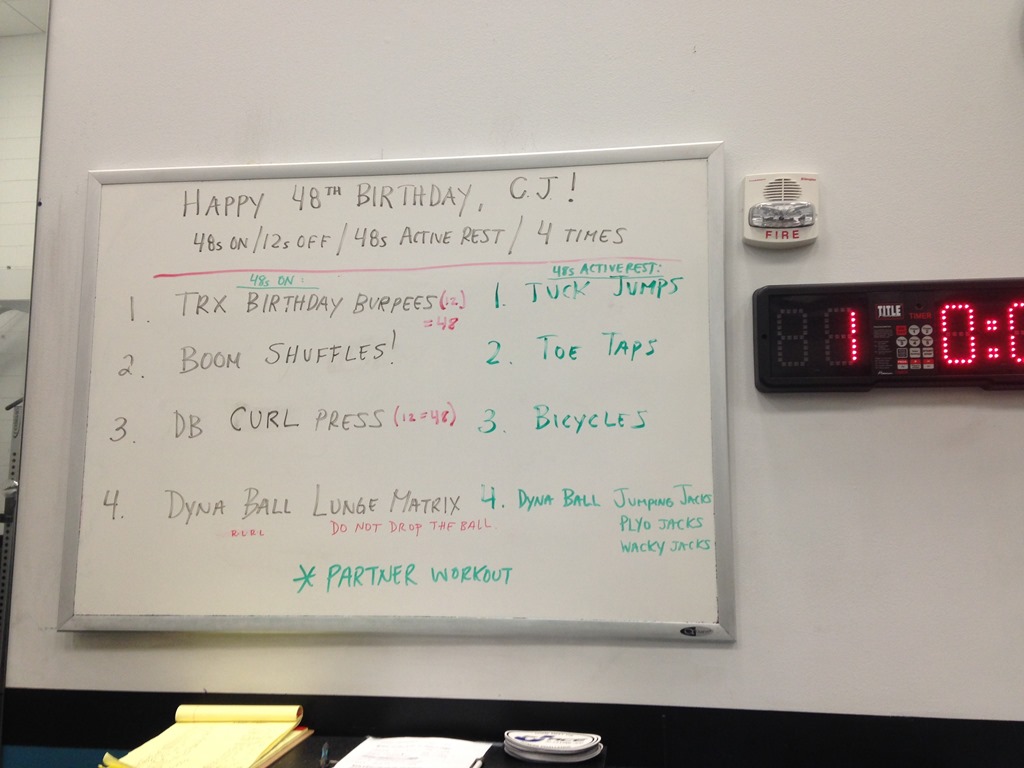 HAPPY 48TH BIRTHDAY, C.J.!
48s ON/12s OFF/48s ACTIVE REST/4 TIMES
48s ON:
48s ACTIVE REST:
1. TRX BIRTHDAY BURPEES (12)
=48
1. TUCK JUMPS
2. BOOM SHUFFLES!
2. TOE TAPS
3. DB CURL PRESS (12=48)
3. BICYCLES
4. DYNA BALL LUNGE MATRIX
DO NOT DROP THE BALL
4. DYNA BALL JUMPING JACKS
PLYO JACKS
WACKY JACKS
* PARTNER WORKOUT
FIRE
TITLE
TIMER
1 0:0